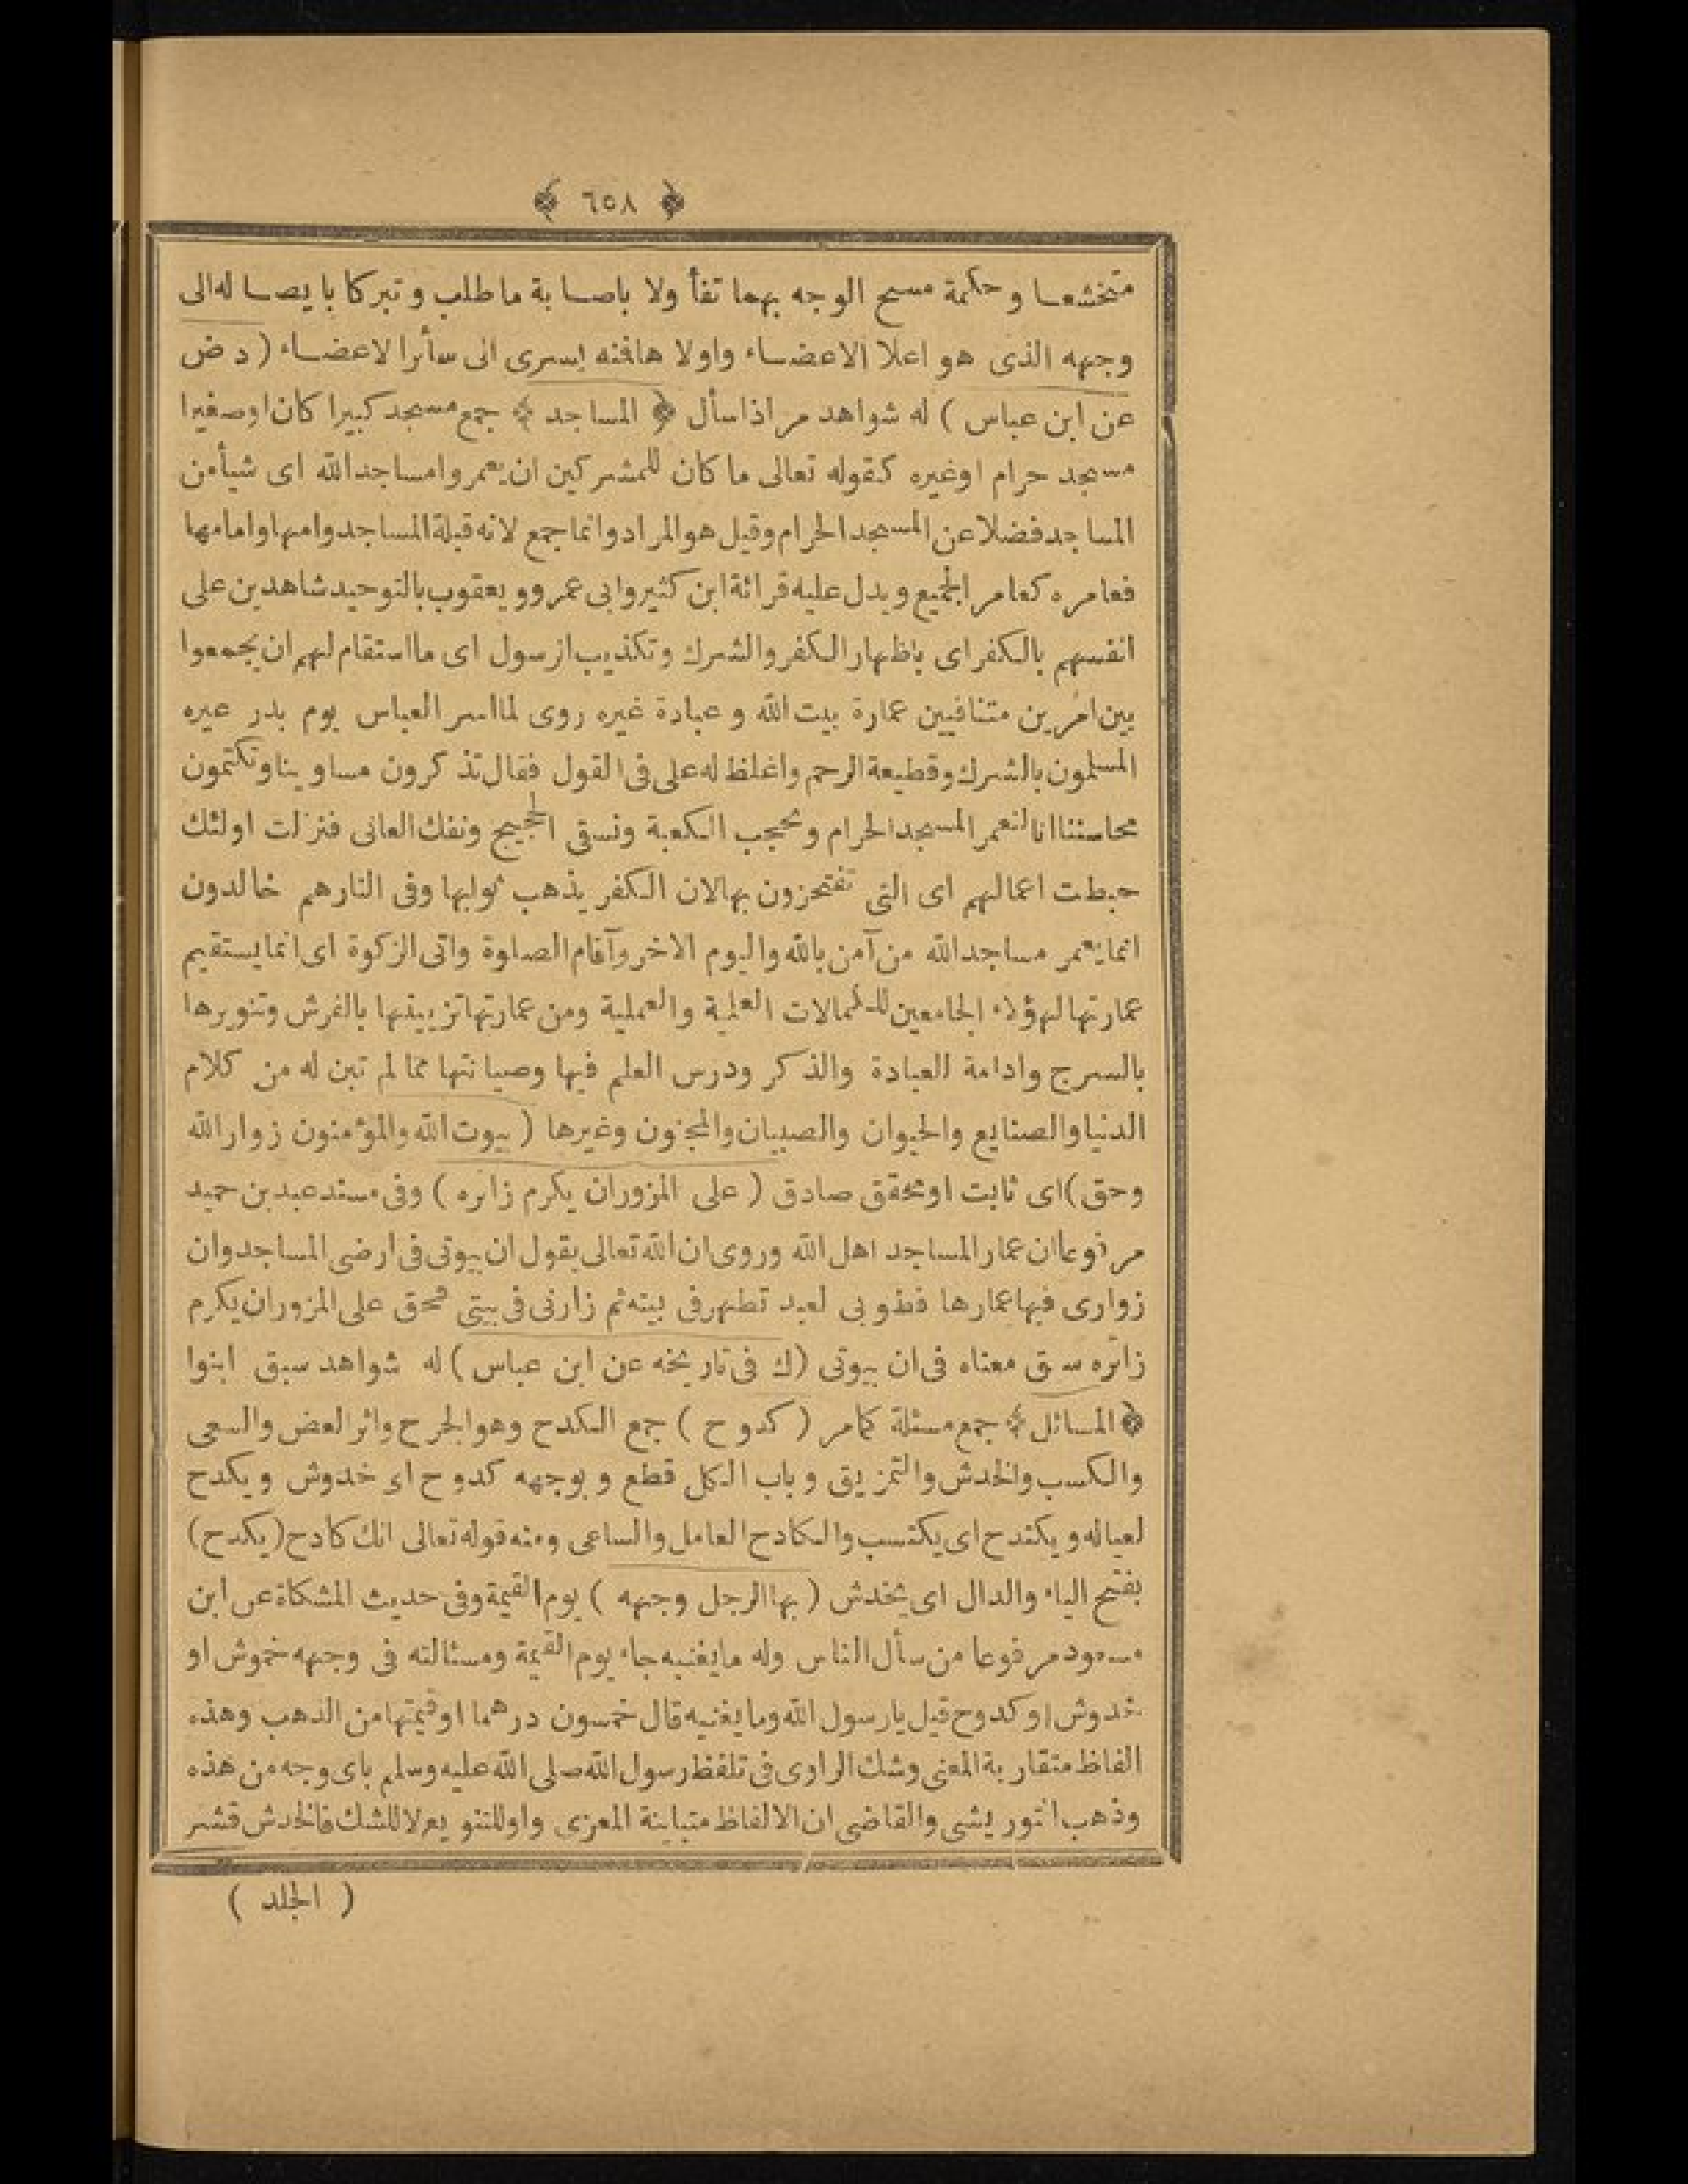 ﴿ ٦٥٨ ﴾
متخشعا وحكمة مسح الوجه بهما تفأ ولا باصابة ما طلب وتبركا بايصاله الى
وجهه الذى هو اعلا الاعضاء واولاها فمنه يسرى الى سأئر الاعضاء ( د ض
عن ابن عباس ) له شواهد مر اذا سأل ﴿ المساجد ﴾ جمع مسجد كبيرا كان او صغيرا
مسجد حرام او غيره كقوله تعالى ما كان للمشركين ان يعمروا مساجد الله اى شيأ من
المساجد فضلا عن المسجد الحرام وقيل هو المراد وانما جمع لانه قبلة المساجد وامها وامامها
فعامره كعامر الجميع ويدل عليه قرائة ابن كثير وابى عمرو ويعقوب بالتوحيد شاهدين على
انفسهم بالكفر اى باظهار الكفر والشرك وتكذيب الرسول اى ما استقام لهم ان يجمعوا
بين امرين متنافيين عمارة بيت الله وعبادة غيره روى لما اسر العباس يوم بدر عيره
المسلمون بالشرك وقطيعة الرحم واغلظ له على فى القول فقال تذكرون مساوينا وتكتمون
محاسننا انا لنعمر المسجد الحرام ونحجب الكعبة ونسقى الحجيج ونفك العانى فنزلت اولئك
حبطت اعمالهم اى التى تفتخرون بها لان الكفر يذهب ثوابها وفى النار هم خالدون
انما يعمر مساجد الله من آمن بالله واليوم الاخر وآقام الصلوة واتى الزكوة اى انما يستقيم
عمارتها لهؤلاء الجامعين للكمالات العلمية والعملية ومن عمارتها تزيينها بالفرش وتنويرها
بالسرج وادامة العبادة والذكر ودرس العلم فيها وصيانتها مما لم تبن له من كلام
الدنيا والصنايع والحيوان والصبيان والمجنون وغيرها ( بيوت الله والمؤمنون زوار الله
وحق ) اى ثابت او محقق صادق ( على المزور ان يكرم زائره ) وفى مسند عبد بن حميد
مرفوعا ان عمار المساجد اهل الله وروى ان الله تعالى يقول ان بيوتى فى ارضى المساجد وان
زوارى فيها عمارها فطوبى لعبد تطهر فى بيته ثم زارنى فى بيتى فحق على المزور ان يكرم
زائره سبق معناه فى ان بيوتى ( ك فى تاريخه عن ابن عباس ) له شواهد سبق ابنوا
﴿ المسائل ﴾ جمع مسئلة كامر ( كدوح ) جمع الكدح وهو الجرح واثر العض والسعى
والكسب والخدش والتمزيق وباب الكل قطع وبوجهه كدوح اى خدوش ويكدح
لعياله ويكتدح اى يكتسب والكادح العامل والساعى ومنه قوله تعالى انك كادح ( يكدح )
بفتح الياء والدال اى يخدش ( بها الرجل وجهه ) يوم القيمة وفى حديث المشكاة عن ابن
مسعود مرفوعا من سأل الناس وله ما يغنيه جاء يوم القيمة ومسئالته فى وجهه خموش او
خدوش او كدوح قيل يا رسول الله وما يغنيه قال خمسون درهما او قيمتها من الذهب وهذه
الفاظ متقاربة المعنى وشك الراوى فى تلفظ رسول الله صلى الله عليه وسلم باى وجه من هذه
وذهب التوريشى والقاضى ان الالفاظ متباينة المعزى واوللتنويع لا للشك فالخدش قشر
( الجلد )